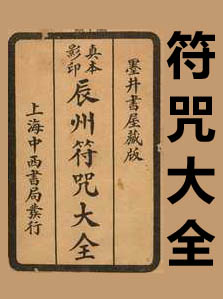 墨井書屋藏版
真本
影印
辰州符咒大全
上海中西書局發行
符咒大全